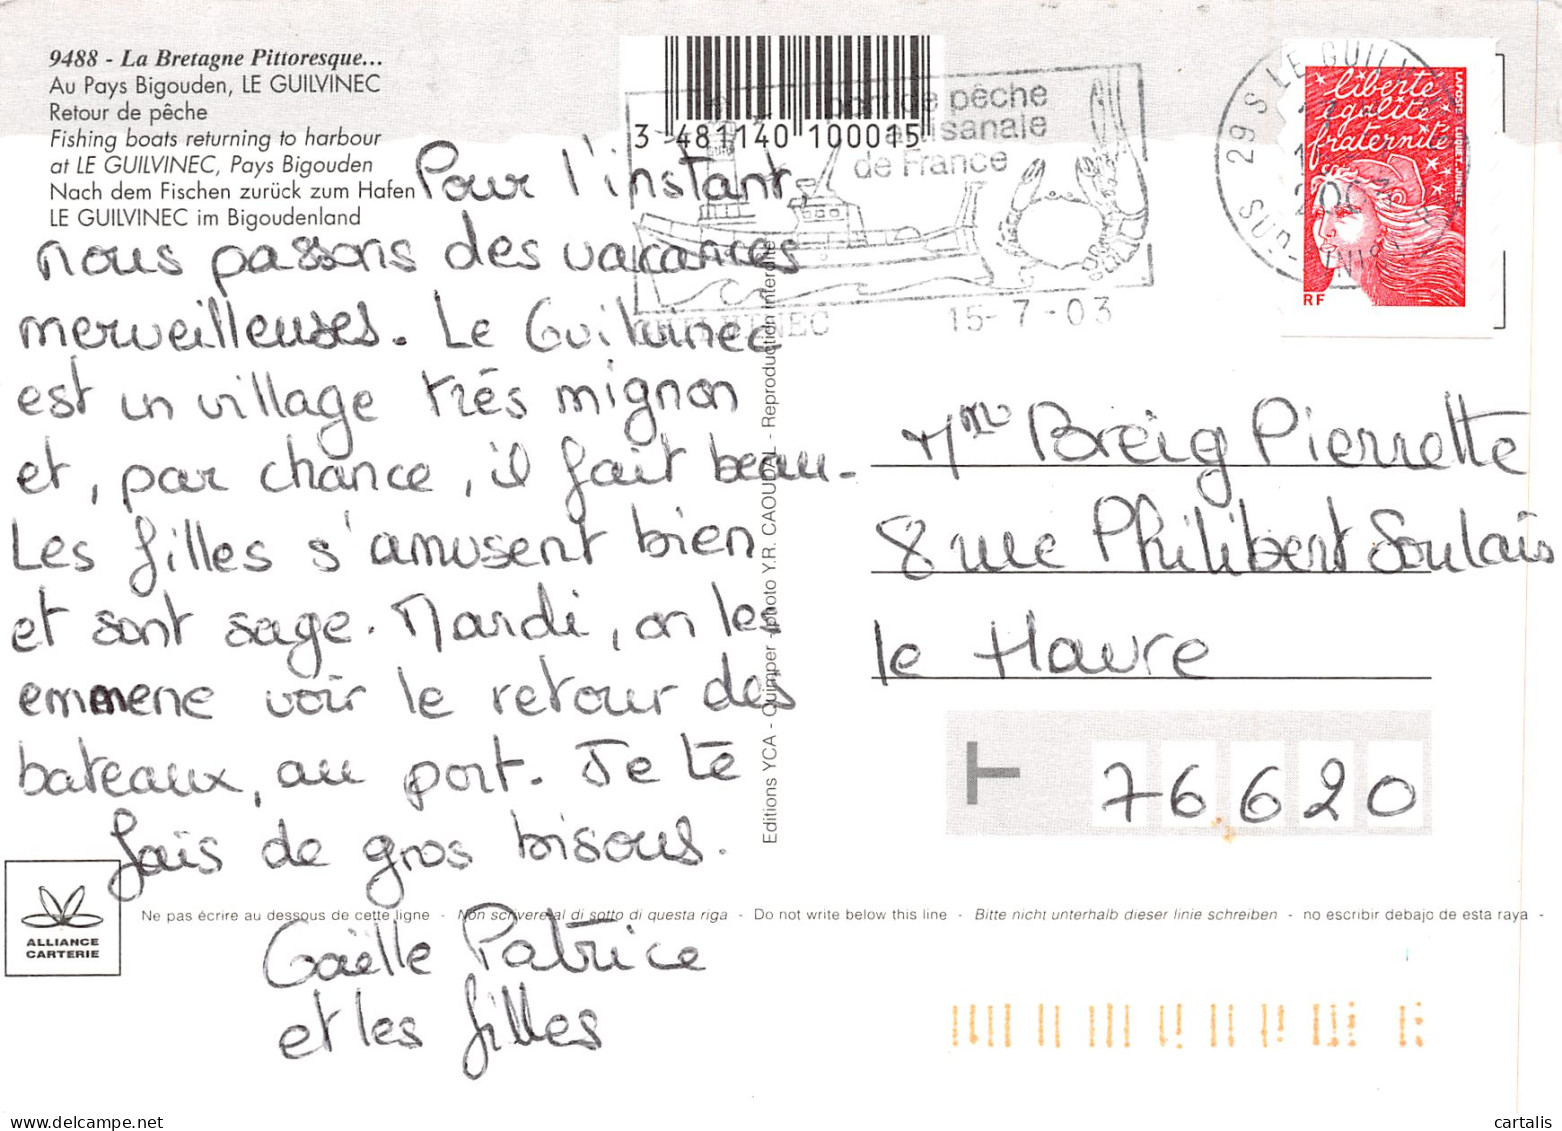 9488 - La Bretagne Pittoresque...
Au Pays Bigouden, LE GUILVINEC
Retour de pêche
Fishing boats returning to harbour
at LE GUILVINEC, Pays Bigouden
Nach dem Fischen zurück zum Hafen
LE GUILVINEC im Bigoudenland
3 481140 100015
de pêche
de France
15-7-03
29 S LE GUILV
liberté
égalité
fraternité
LA POSTE LUQUET.JUMELET
RF
Pour l'instant,
nous passons des vacances
merveilleuses. Le Guilvinec
est un village très mignon
et, par chance, il fait beau.
Les filles s'amusent bien
et sont sage. Mardi, on les
emmene voir le retour des
bateaux, au port. Je te
fais de gros bisous.
Gaëlle Patrice
et les filles
Editions YCA - Quimper - photo Y.R. CAOUDAL - Reproduction interdite
Mme Breig Pierrette
8 rue Philibert Soulais
le Havre
76620
ALLIANCE
CARTERIE
Ne pas écrire au dessous de cette ligne - Non scrivere al di sotto di questa riga - Do not write below this line - Bitte nicht unterhalb dieser linie schreiben - no escribir debajo de esta raya -
cartalis